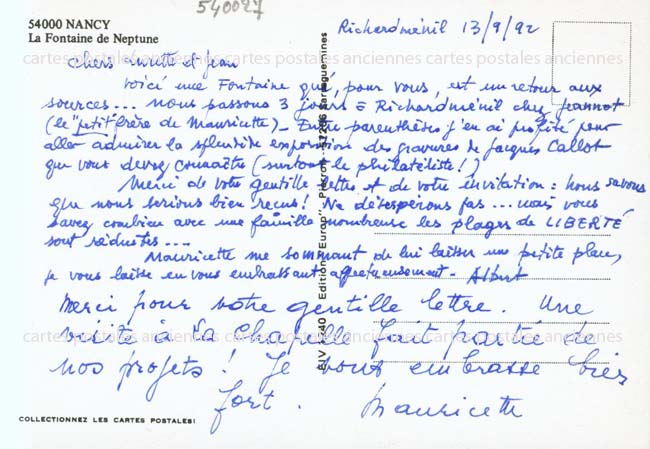 540027
54000 NANCY
La Fontaine de Neptune
Richardménil 13/9/92
Chers et Jean
Voici une Fontaine qui, pour vous, est un retour aux
sources... nous passons 3 jours à Richardménil chez Jeannot
(le "petit" frère de Mauricette) - Entre parenthèses j'en ai profité pour
aller admirer la splendide exposition des gravures de Jacques Callot
que vous devez connaître (surtout le philatéliste!)
Merci de votre gentille lettre et de votre invitation : nous savons
que nous serions bien reçus! Ne désespérons pas... mais vous
savez combien avec une famille nombreuse les plages de LIBERTÉ
sont réduites...
Mauricette me sommant de lui laisser une petite place,
je vous laisse en vous embrassant affectueusement - Albert
Merci pour votre gentille lettre. Une
visite à La Chapelle fait partie de
nos projets! Je vous embrasse bien
fort. Mauricette
COLLECTIONNEZ LES CARTES POSTALES!
Edition "Europ" Pierron - Sarreguemines
cartes postales anciennes cartes postales anciennes cartes postales anciennes
cartes postales anciennes cartes postales anciennes cartes postales anciennes
cartes postales anciennes cartes postales anciennes cartes postales anciennes